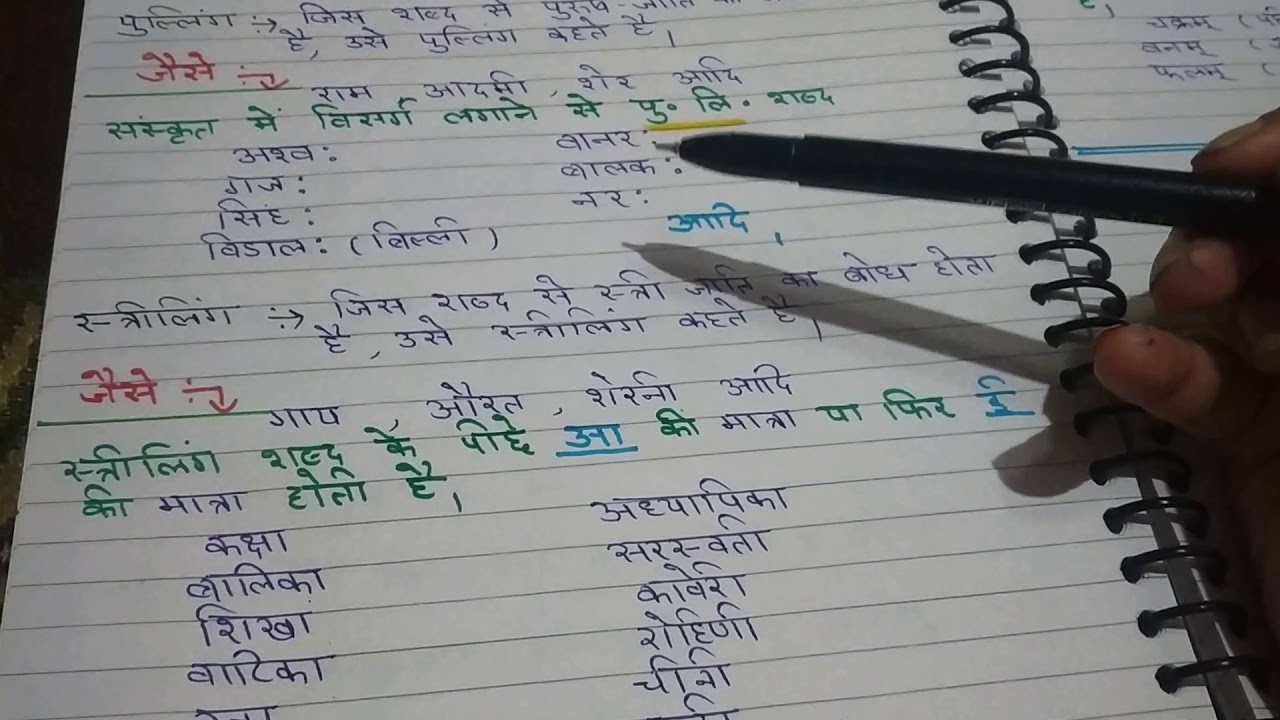 पुल्लिंग :→ जिस शब्द से पुरुष-जाति
है, उसे पुल्लिंग कहते है।
जैसे :→
राम आदमी, शेर आदि
संस्कृत में विसर्ग लगाने से पु. लि. शब्द
अश्व: वानर:
गज: बालक:
सिंह: नर:
विडाल: (बिल्ली) आदि।
स्त्रीलिंग :→ जिस शब्द से स्त्री जाति का बोध होता
है, उसे स्त्रीलिंग कहते है।
जैसे :→
गाय, औरत, शेरनी आदि
स्त्रीलिंग शब्द के पीछे आ की मात्रा या फिर ई
की मात्रा होती है।
कक्षा अध्यापिका
बालिका सरस्वती
शिखा कावेरी
वाटिका रोहिणी
चीनी
है।
चक्रम् (
वनम् (
फलम् (